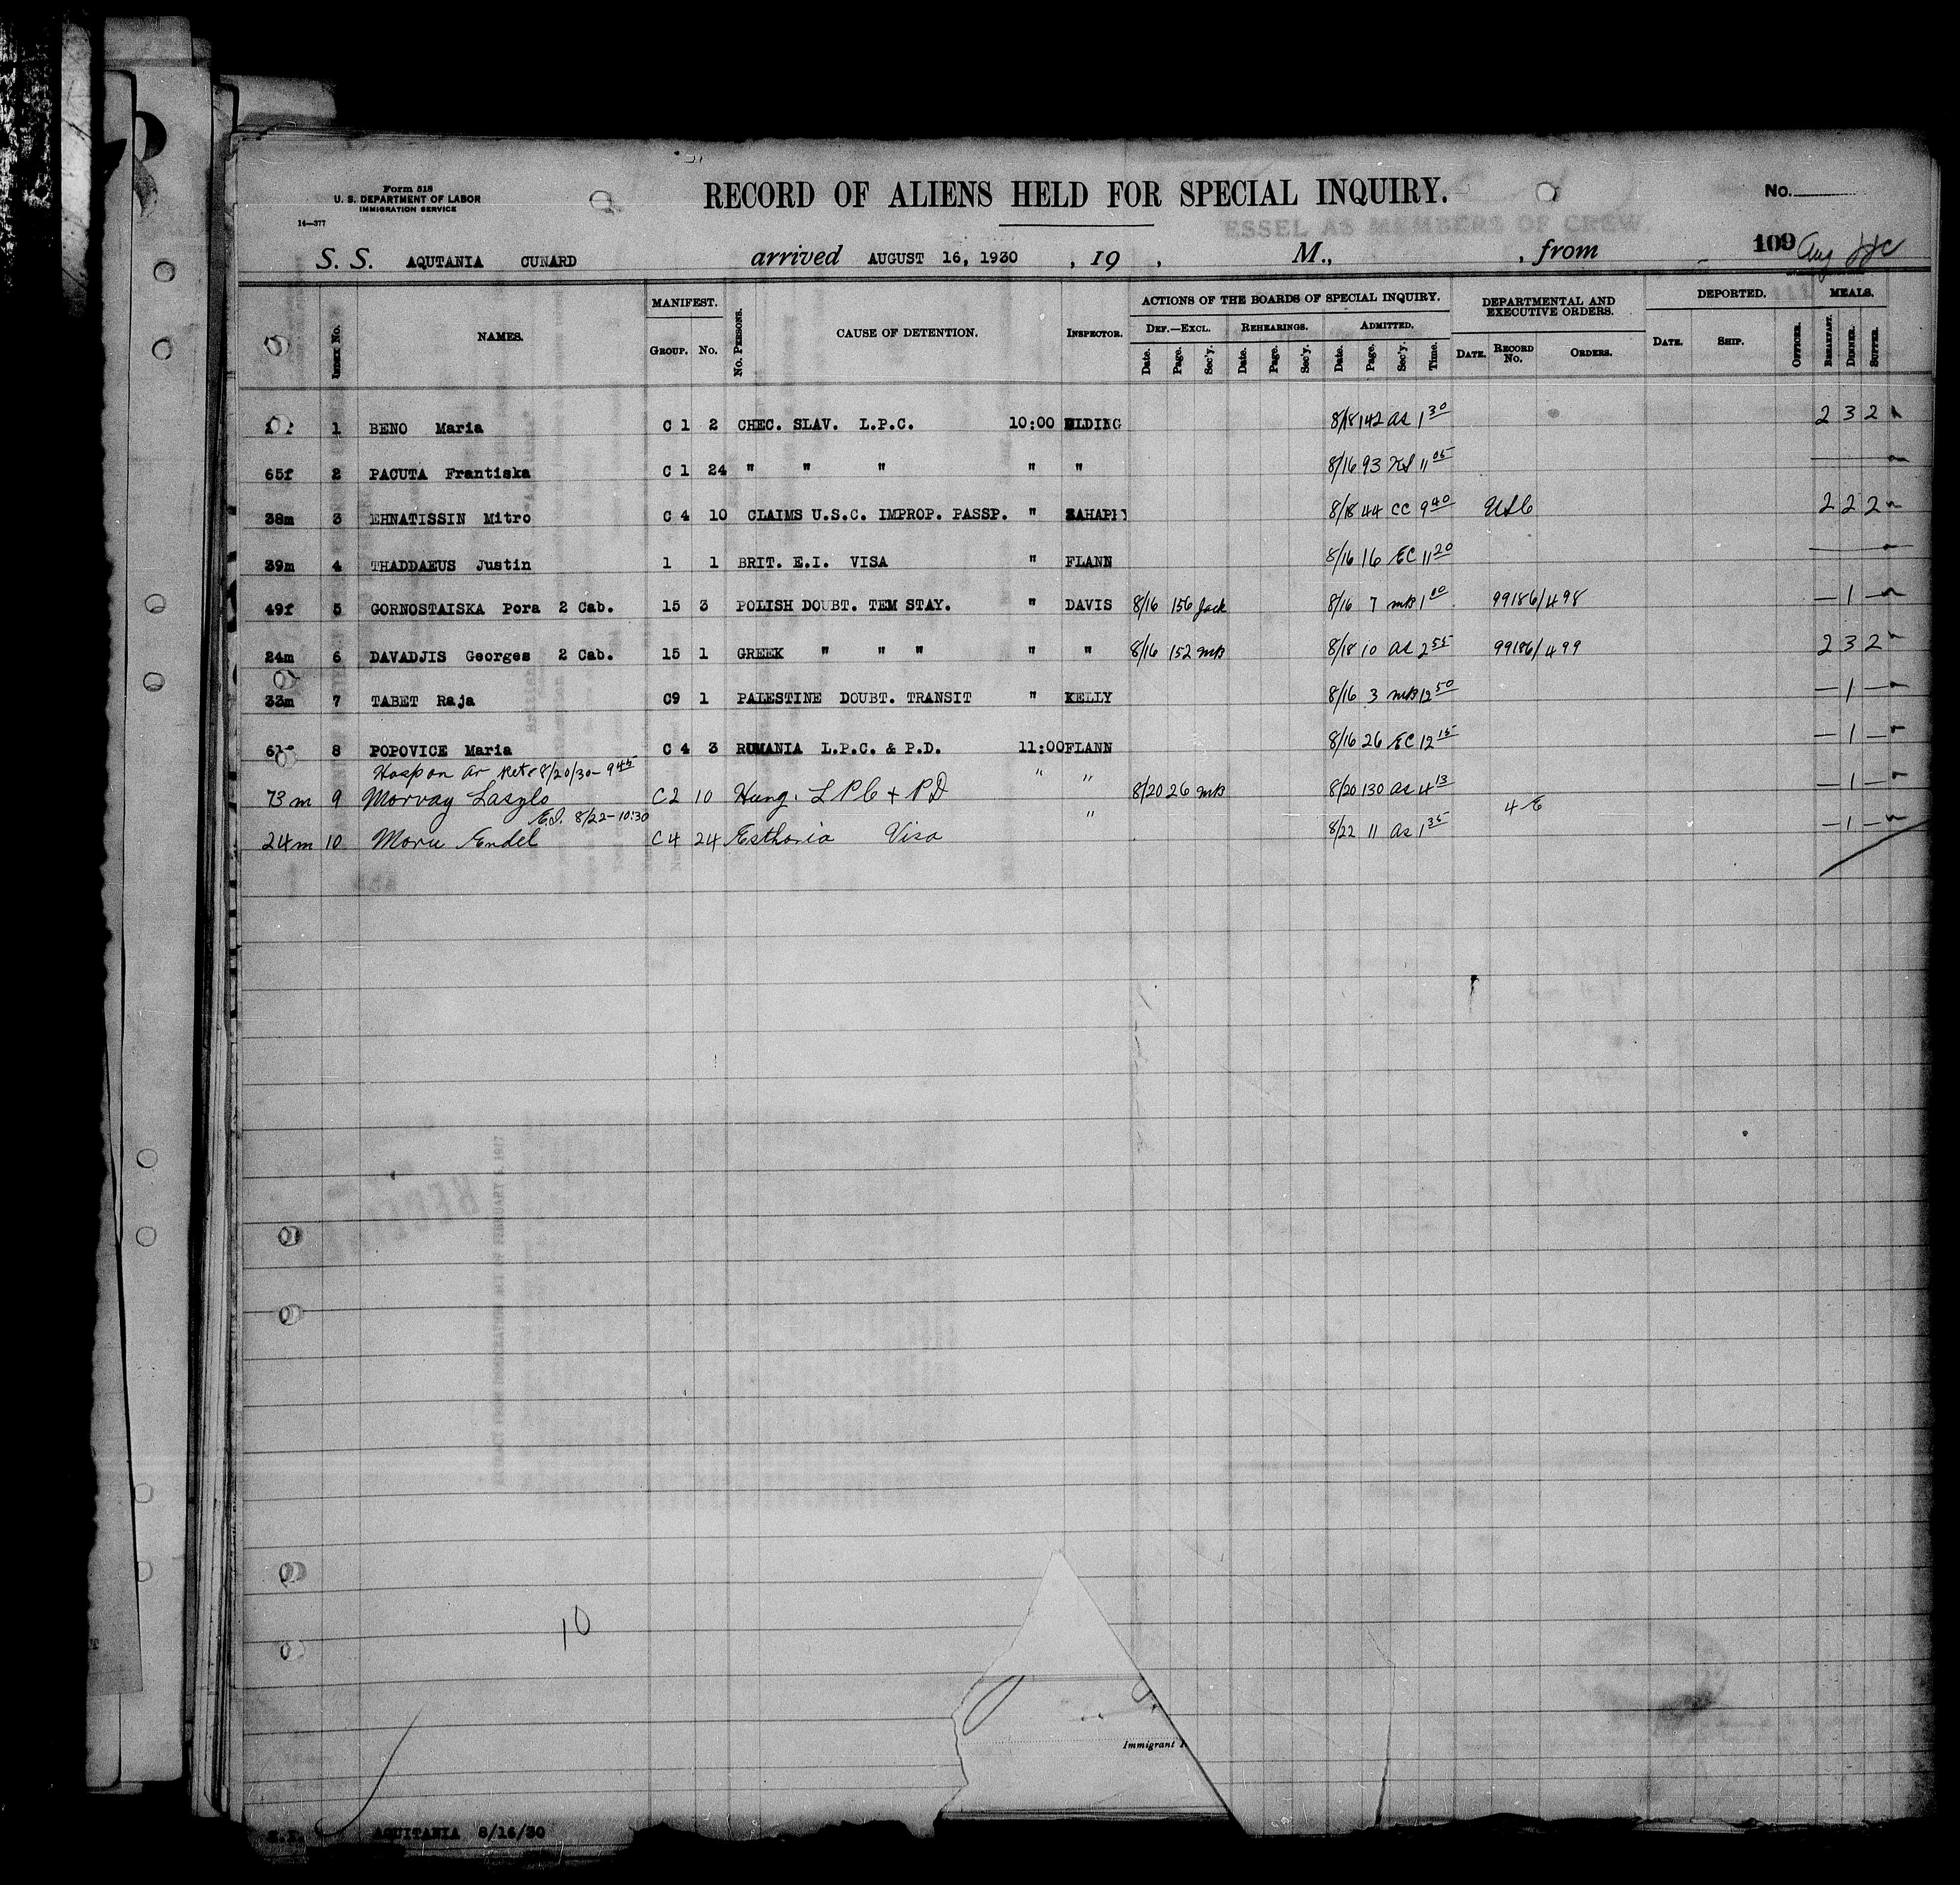 Form 518
U. S. DEPARTMENT OF LABOR
IMMIGRATION SERVICE
14—377
RECORD OF ALIENS HELD FOR SPECIAL INQUIRY.
No.
ESSEL AS MEMBERS OF CREW.
109
S. S. AQUTANIA CUNARD arrived AUGUST 16, 1930 , 19 , M., , from
Index No. NAMES. MANIFEST. GROUP. No. No. PERSONS. CAUSE OF DETENTION. INSPECTOR. ACTIONS OF THE BOARDS OF SPECIAL INQUIRY. DEPARTMENTAL AND EXECUTIVE ORDERS. DEPORTED. MEALS.
DEF.—EXCL. REHEARINGS. ADMITTED.
Date. Page. Sec'y. Date. Page. Sec'y. Date. Page. Sec'y. Time. DATE. RECORD No. ORDERS. DATE. SHIP. OFFICER. BREAKFAST. DINNER. SUPPER.
1 BENO Maria C 1 2 CHEC. SLAV. L.P.C. 10:00 ELDING 8/18 142 as 1 30 2 3 2
65f 2 PACUTA Frantiska C 1 24 " " " " " 8/16 93 11 05 —
38m 3 EHNATISSIN Mitro C 4 10 CLAIMS U.S.C. IMPROP. PASSP. " 8/18 44 CC 9 40 USC 2 2 2
39m 4 THADDAEUS Justin 1 1 BRIT. E.I. VISA " FLANN 8/16 16 EC 11 20 —
49f 5 GORNOSTAISKA Pora 2 Cab. 15 3 POLISH DOUBT. TEM STAY. " DAVIS 8/16 156 Jack 8/16 7 mB 1 00 99186/498 — 1 —
24m 6 DAVADJIS Georges 2 Cab. 15 1 GREEK " " " " " 8/16 152 mB 8/18 10 as 2 55 99186/499 2 3 2
33m 7 TABET Raja C9 1 PALESTINE DOUBT. TRANSIT " KELLY 8/16 3 mB 12 50 — 1 —
61f 8 POPOVICE Maria C 4 3 RUMANIA L.P.C. & P.D. 11:00 FLANN 8/16 26 EC 12 15 — 1 —
Hosp on ar Retr 8/20/30 - 9 45
73m 9 Morvay Laszlo C2 10 Hung. L P C + P D " " 8/20 26 mB 8/20 130 as 4 13 — 1 —
8/22 - 10:30
24m 10 Moru Endel C4 24 Esthonia Visa " 8/22 11 as 1 35 — 1 —
10
Immigrant
AQUITANIA 8/16/30